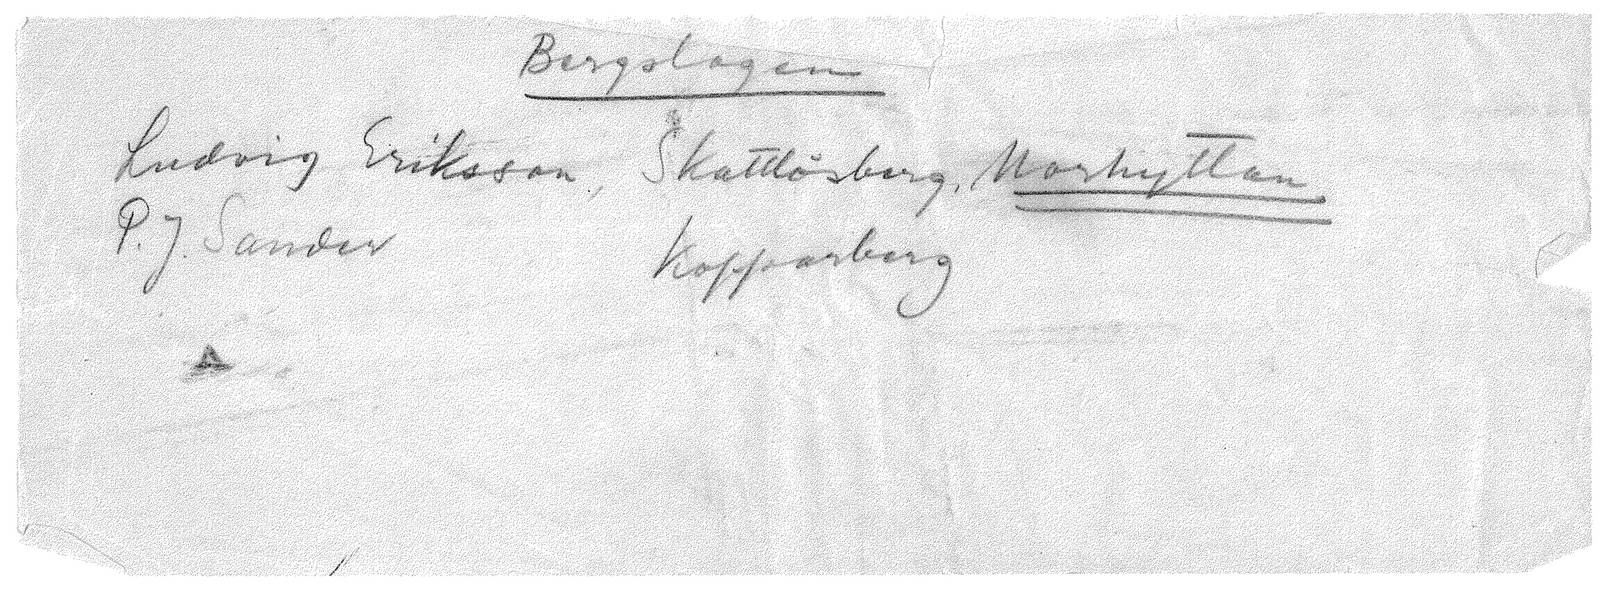 Bergslagen
Ludvig Eriksson, Skattlösberg, Norhyttan
P. J. Sander Kopparberg